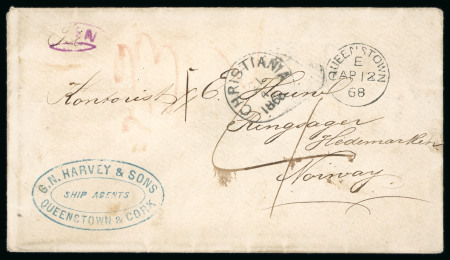 QUEENSTOWN
E
AP 12
68
CHRISTIANIA
Kontorist E.
Ringsager
Hedemarken
Norway
G.N. HARVEY & SONS
SHIP AGENTS
QUEENSTOWN & CORK